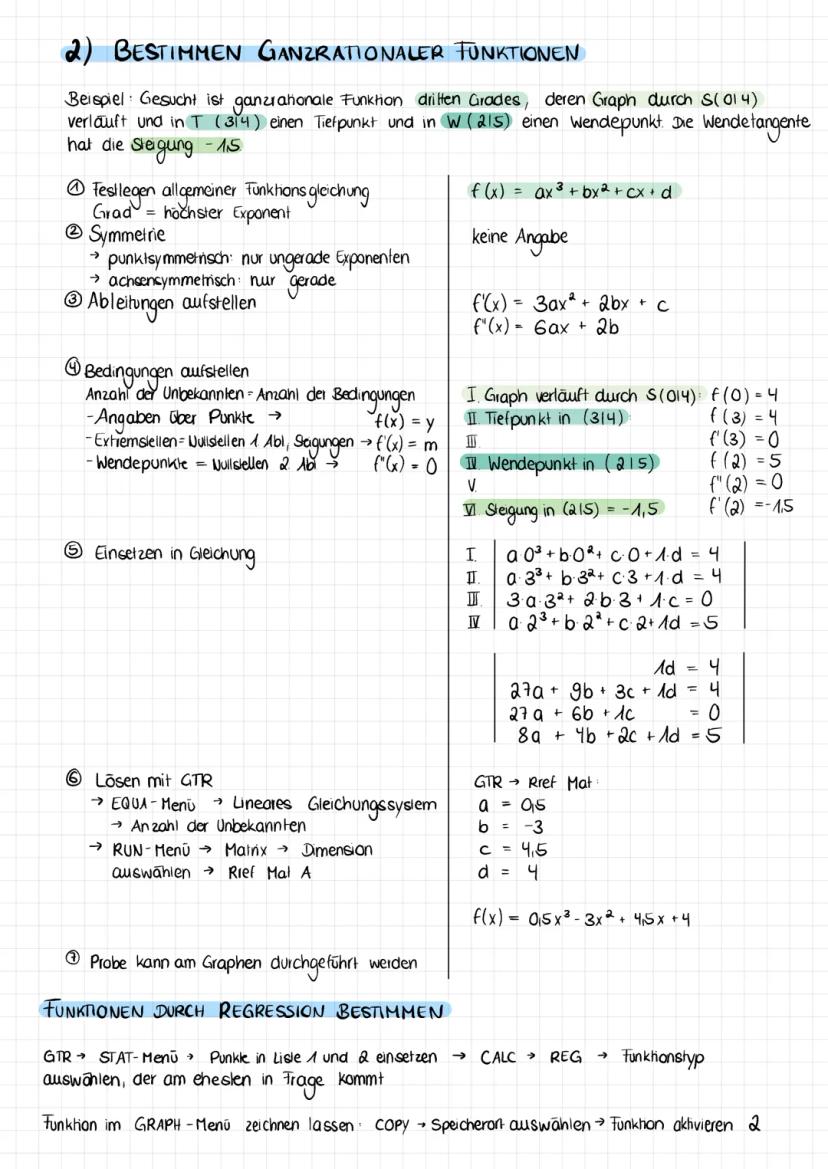 2) BESTIMMEN GANZRATIONALER FUNKTIONEN
Beispiel: Gesucht ist ganzrationale Funktion dritten Grades, deren Graph durch S(0|4)
verläuft und in T (3|4) einen Tiefpunkt und in W (2|5) einen Wendepunkt. Die Wendetangente
hat die Steigung -1,5
① Festlegen allgemeiner Funktionsgleichung
Grad = höchster Exponent
f(x) = ax³ + bx² + cx + d
② Symmetrie
→ punktsymmetrisch: nur ungerade Exponenten
→ achsensymmetrisch: nur gerade
keine Angabe
③ Ableitungen aufstellen
f'(x) = 3ax² + 2bx + c
f"(x) = 6ax + 2b
④ Bedingungen aufstellen
Anzahl der Unbekannten = Anzahl der Bedingungen
- Angaben über Punkte → f(x) = y
- Extremstellen = Nullstellen 1. Abl, Steigungen → f'(x) = m
- Wendepunkte = Nullstellen 2. Abl → f"(x) = 0
I. Graph verläuft durch S(0|4): f(0) = 4
II. Tiefpunkt in (3|4) f(3) = 4
III. f'(3) = 0
IV. Wendepunkt in (2|5) f(2) = 5
V. f"(2) = 0
VI. Steigung in (2|5) = -1,5 f'(2) = -1,5
⑤ Einsetzen in Gleichung
I. a·0³ + b·0² + c·0 + 1·d = 4
II. a·3³ + b·3² + c·3 + 1·d = 4
III. 3·a·3² + 2·b·3 + 1·c = 0
IV a·2³ + b·2² + c·2 + 1d = 5
1d = 4
27a + 9b + 3c + 1d = 4
27a + 6b + 1c = 0
8a + 4b + 2c + 1d = 5
⑥ Lösen mit GTR
→ EQUA-Menü → Lineares Gleichungssystem
→ Anzahl der Unbekannten
→ RUN-Menü → Matrix → Dimension
auswählen → Rref Mat A
GTR → Rref Mat:
a = 0,5
b = -3
c = 4,5
d = 4
f(x) = 0,5x³ - 3x² + 4,5x + 4
⑦ Probe kann am Graphen durchgeführt werden
FUNKTIONEN DURCH REGRESSION BESTIMMEN
GTR → STAT-Menü → Punkte in Liste 1 und 2 einsetzen → CALC → REG → Funktionstyp
auswählen, der am ehesten in Frage kommt
Funktion im GRAPH-Menü zeichnen lassen: COPY → Speicherort auswählen → Funktion aktivieren 2